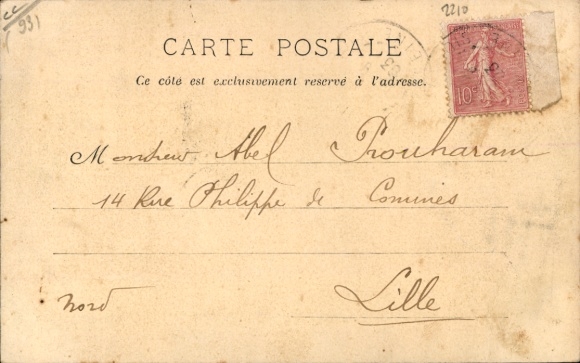 cc
931
2210
CARTE POSTALE
Ce côté est exclusivement reservé à l'adresse.
10c
Monsieur Abel Prouharam
14 Rue Philippe de Comines
Lille
Nord